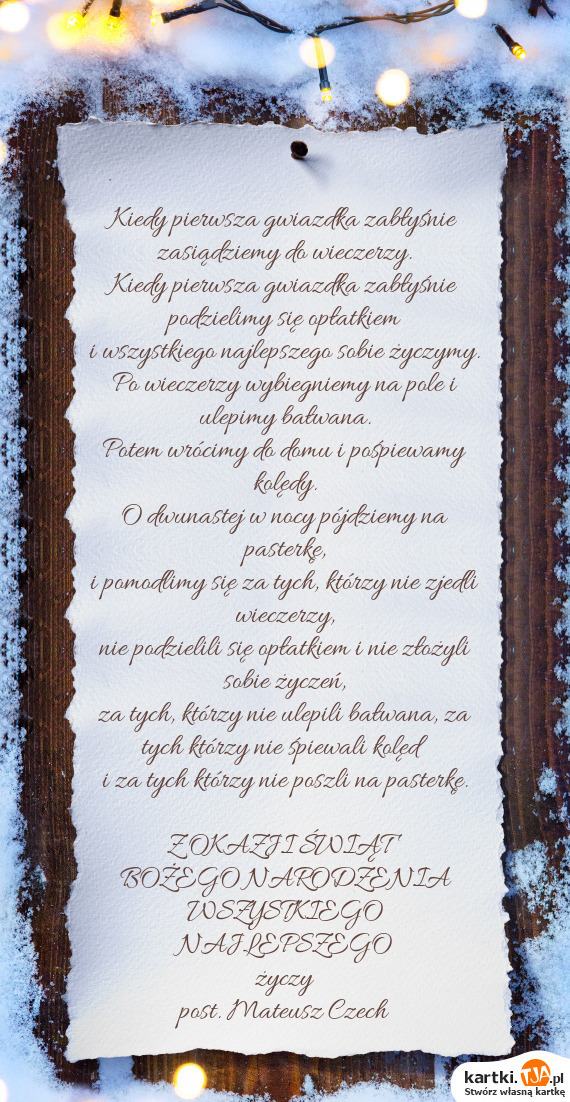 Kiedy pierwsza gwiazdka zabłyśnie
zasiądziemy do wieczerzy.
Kiedy pierwsza gwiazdka zabłyśnie
podzielimy się opłatkiem
i wszystkiego najlepszego sobie życzymy.
Po wieczerzy wybiegniemy na pole i
ulepimy bałwana.
Potem wrócimy do domu i pośpiewamy
kolędy.
O dwunastej w nocy pójdziemy na
pasterkę,
i pomodlimy się za tych, którzy nie zjedli
wieczerzy,
nie podzielili się opłatkiem i nie złożyli
sobie życzeń,
za tych, którzy nie ulepili bałwana, za
tych którzy nie śpiewali kolęd
i za tych którzy nie poszli na pasterkę.
Z OKAZJI ŚWIĄT
BOŻEGO NARODZENIA
WSZYSTKIEGO
NAJLEPSZEGO
życzy
post. Mateusz Czech
kartki.TJA.pl
Stwórz własną kartkę